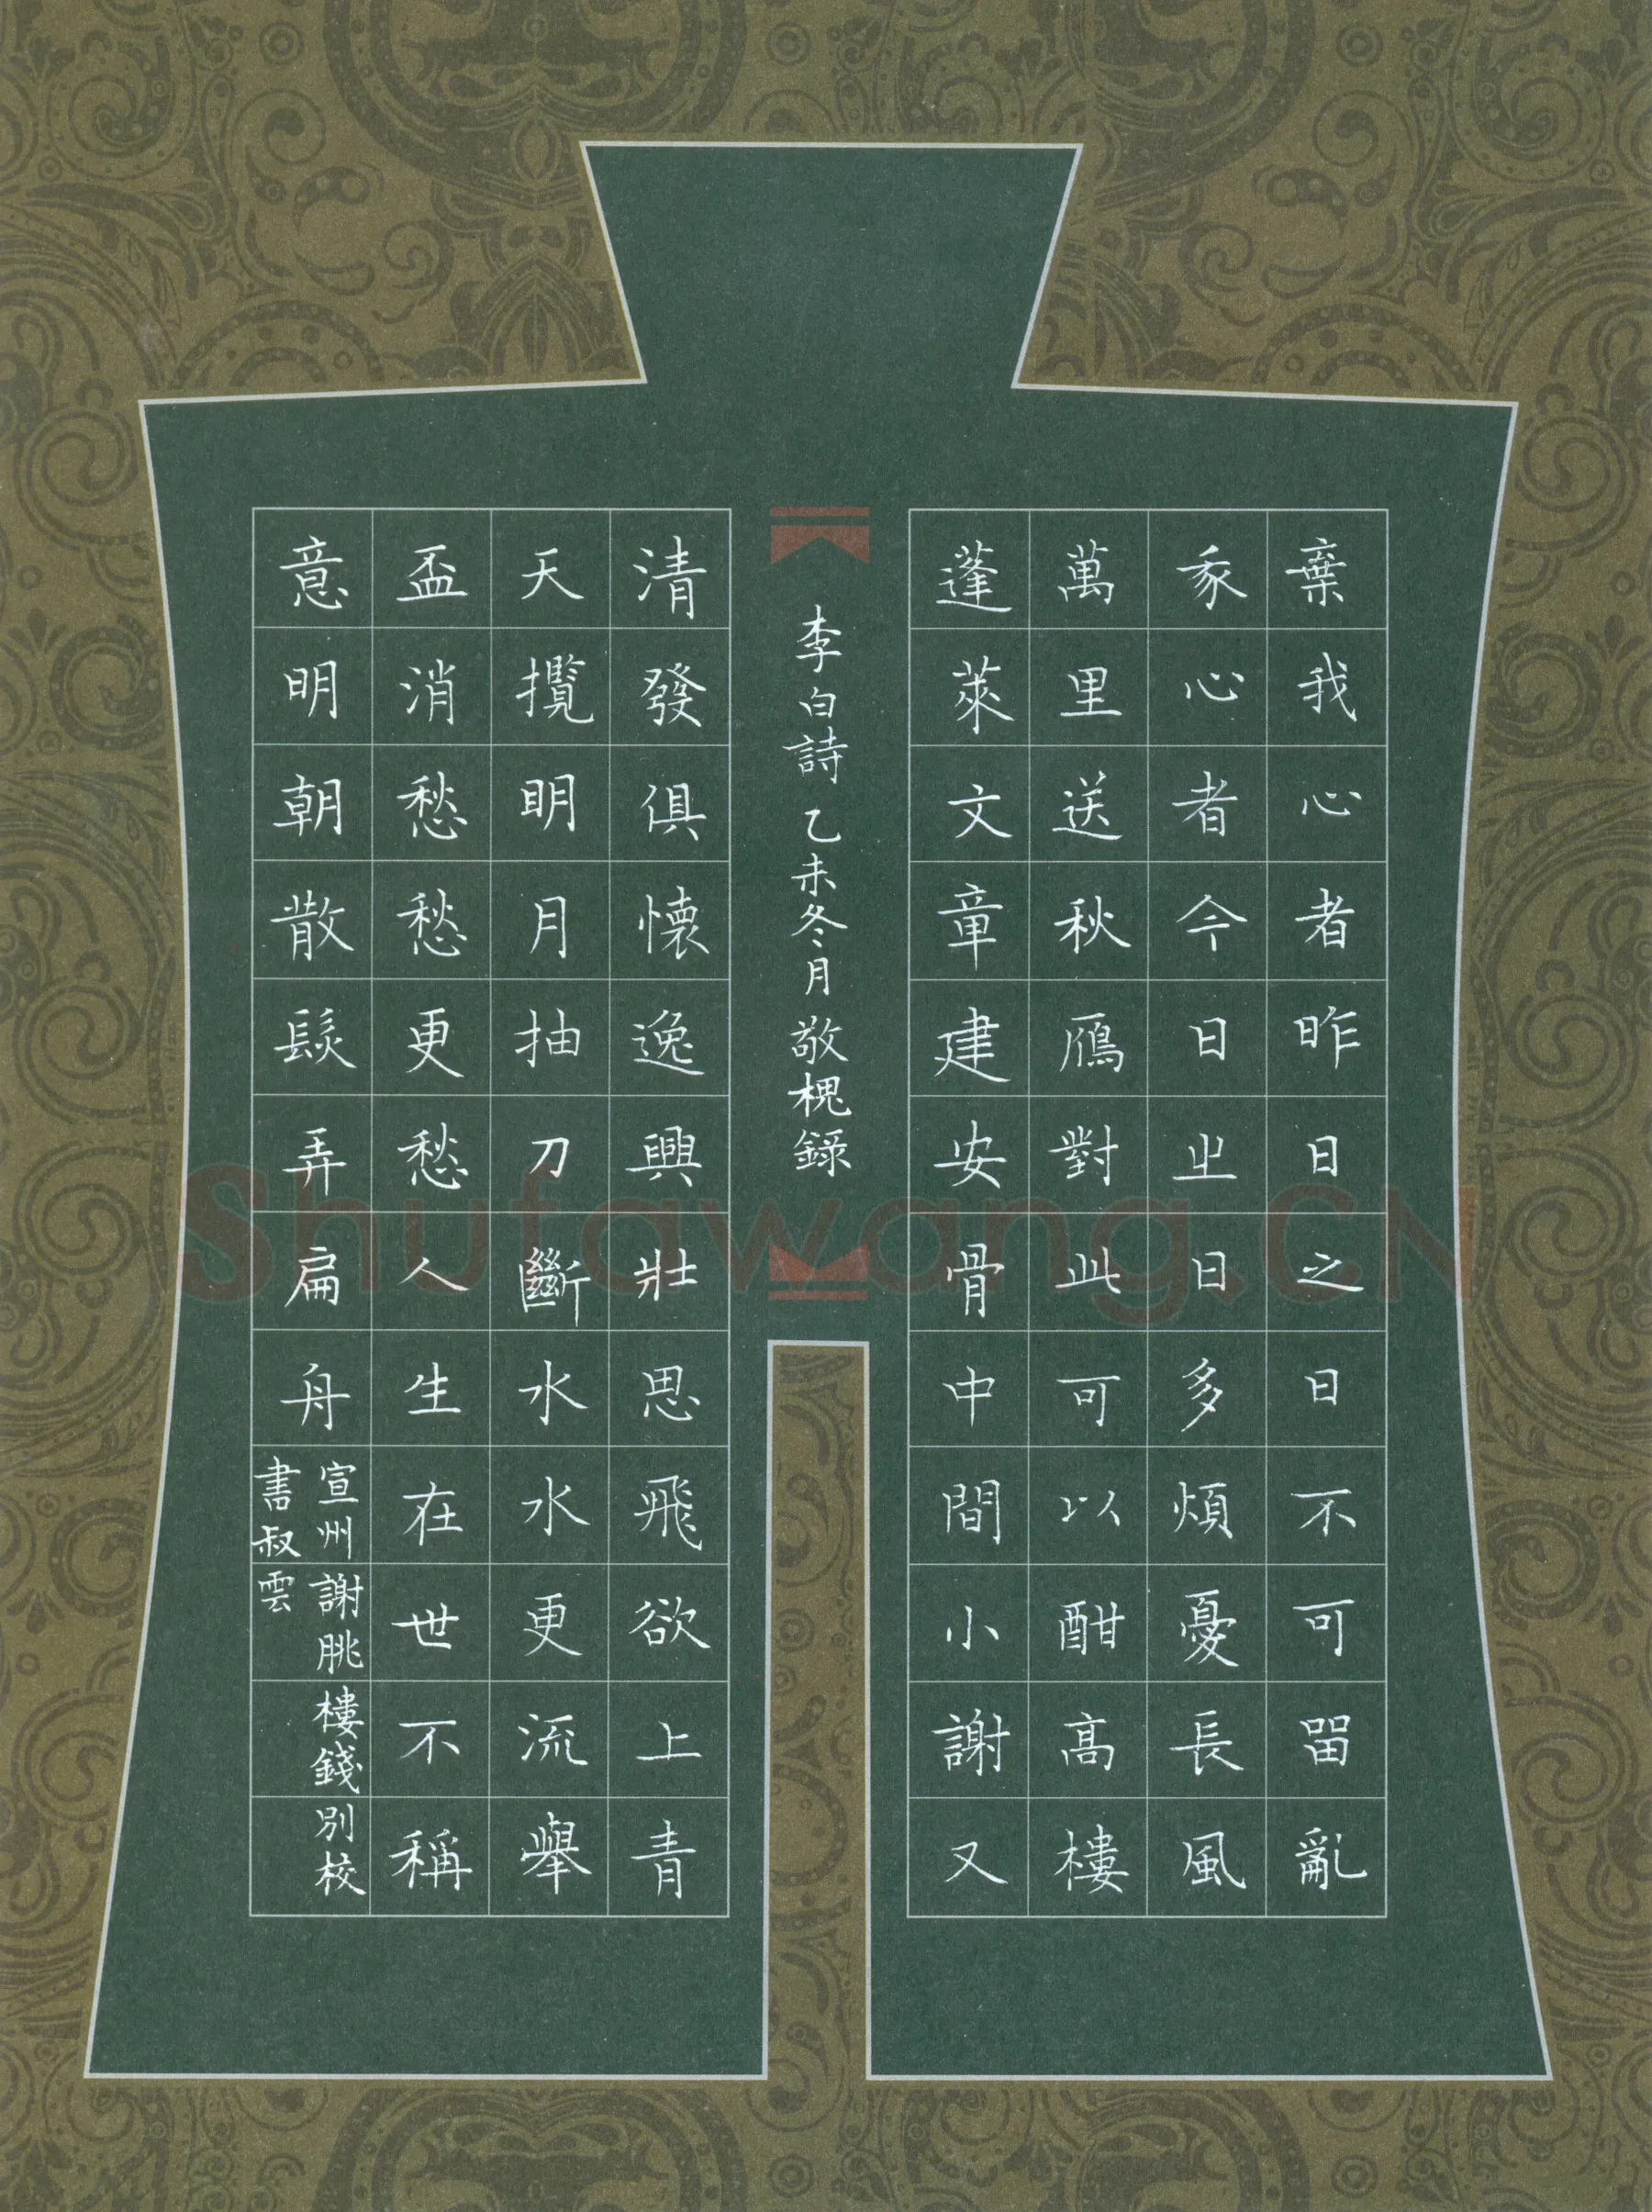 棄我心者昨日之日不可留亂
我心者今日㞢日多煩憂長風
萬里送秋鴈對此可以酣高樓
蓬萊文章建安骨中間小謝又
清發俱懷逸興壯思飛欲上青
天攬明月抽刀斷水水更流舉
盃消愁愁更愁人生在世不稱
意明朝散髮弄扁舟
宣州謝朓樓錢別校
書叔雲
李白詩乙未冬月敬槐錄
Shufawang.CN